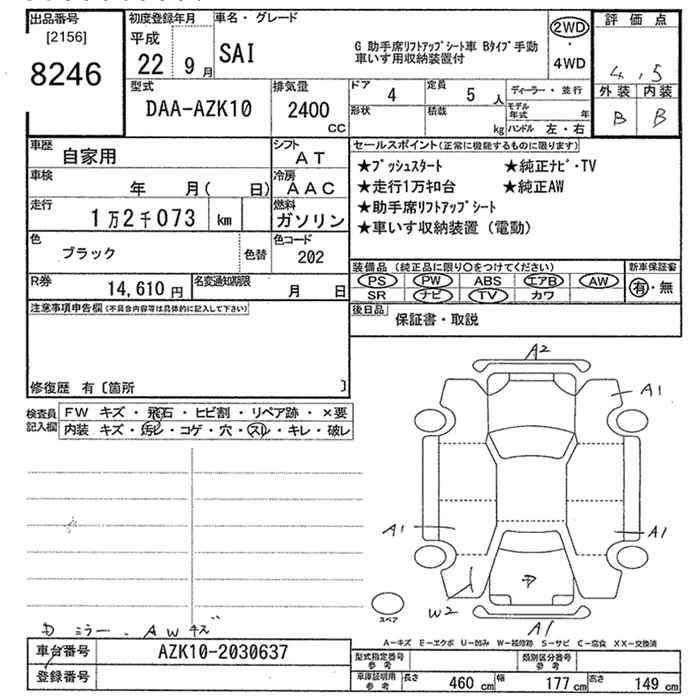 出品番号
[2156]
8246
初度登録年月
平成
22 9月
車名・グレード
SAI
G 助手席リフトアップシート車 Bタイプ手動
車いす用収納装置付
2WD
・
4WD
評価点
4.5
外装 内装
B B
型式
DAA-AZK10
排気量
2400
CC
ドア
4
定員
5人
ディーラー・並行
形状
積載
kg
モデル年式 年
ハンドル 左・右
車歴
自家用
シフト
AT
車検
年 月( 日)
冷房
AAC
走行
1万2千073 km
燃料
ガソリン
色
ブラック
色替
色コード
202
R券
14,610円
名変通知期限
月 日
セールスポイント(正常に機能するものに限ります)
★プッシュスタート ★純正ナビ・TV
★走行1万キロ台 ★純正AW
★助手席リフトアップシート
★車いす収納装置(電動)
装備品(純正品に限り○をつけてください)
PS PW ABS エアB AW
SR ナビ TV カワ
新車保証書
有・無
後日品
保証書・取説
注意事項申告欄(不具合内容等は具体的に記入して下さい)
修復歴 有〔箇所 〕
検査員記入欄
FW キズ・飛石・ヒビ割・リペア跡・×要
内装 キズ・汚レ・コゲ・穴・スレ・キレ・破レ
A2
A1
A1
A1
D
W2
A1
スペア
D ミラー. AWキズ
A-キズ E-エクボ U-凹み W-補修跡 S-サビ C-腐食 XX-交換済
車台番号
AZK10-2030637
登録番号
型式指定番号
参考
類別区分番号
参考
車庫証明用
参考
長さ 460 cm 幅 177 cm 高さ 149 cm